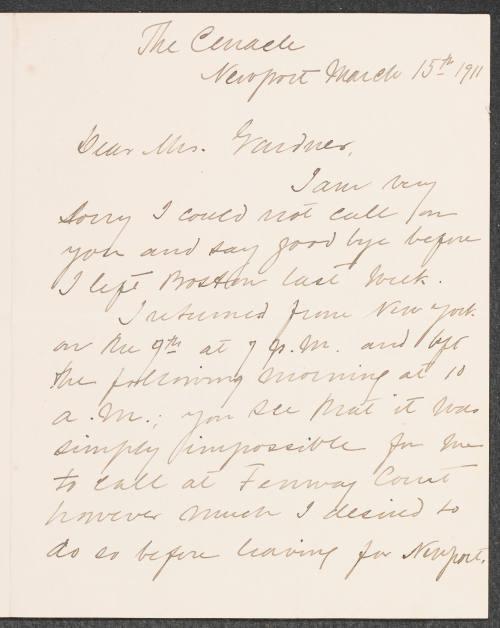 The Cenacle
Newport March 15th 1911
Dear Mrs. Gardner,
I am very
sorry I could not call on
you and say good bye before
I left Boston last week.
I returned from New York
on the 9th at 7 p.m. and left
the following morning at 10
a.m.; you see that it was
simply impossible for me
to call at Fenway Court
however much I desired to
do so before leaving for Newport.